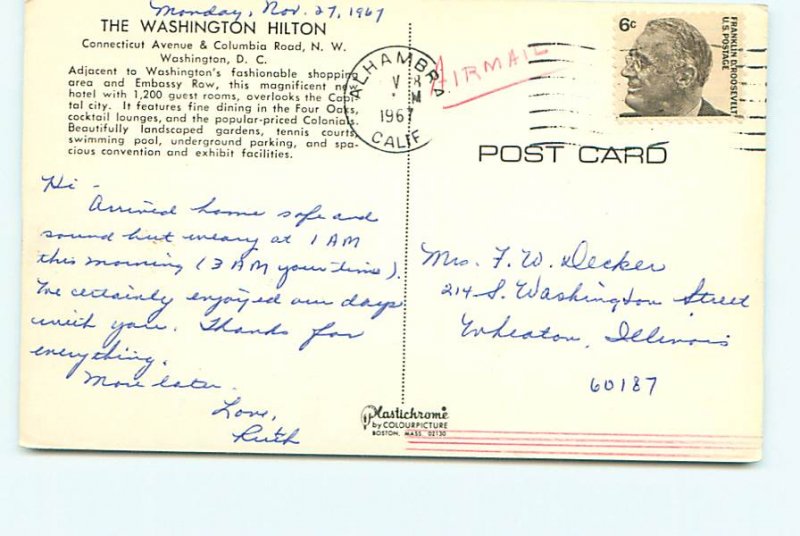 Monday, Nov. 27, 1967
THE WASHINGTON HILTON
Connecticut Avenue & Columbia Road, N. W.
Washington, D. C.
Adjacent to Washington's fashionable shopping
area and Embassy Row, this magnificent new
hotel with 1,200 guest rooms, overlooks the Capi-
tal city. It features fine dining in the Four Oaks,
cocktail lounges, and the popular-priced Colonial.
Beautifully landscaped gardens, tennis courts,
swimming pool, underground parking, and spa-
cious convention and exhibit facilities.
Hi -
Arrived home safe and
sound but weary at 1 AM
this morning (3 AM your time).
We certainly enjoyed our days
with you. Thanks for
everything.
More later.
Love,
Ruth
ALHAMBRA
1967
CALIF
AIRMAIL
6c
FRANKLIN D. ROOSEVELT
U.S. POSTAGE
POST CARD
Mrs. F. W. Decker
214 S. Washington Street
Wheaton, Illinois
60187
Plastichrome
by COLOURPICTURE
BOSTON, MASS 02130